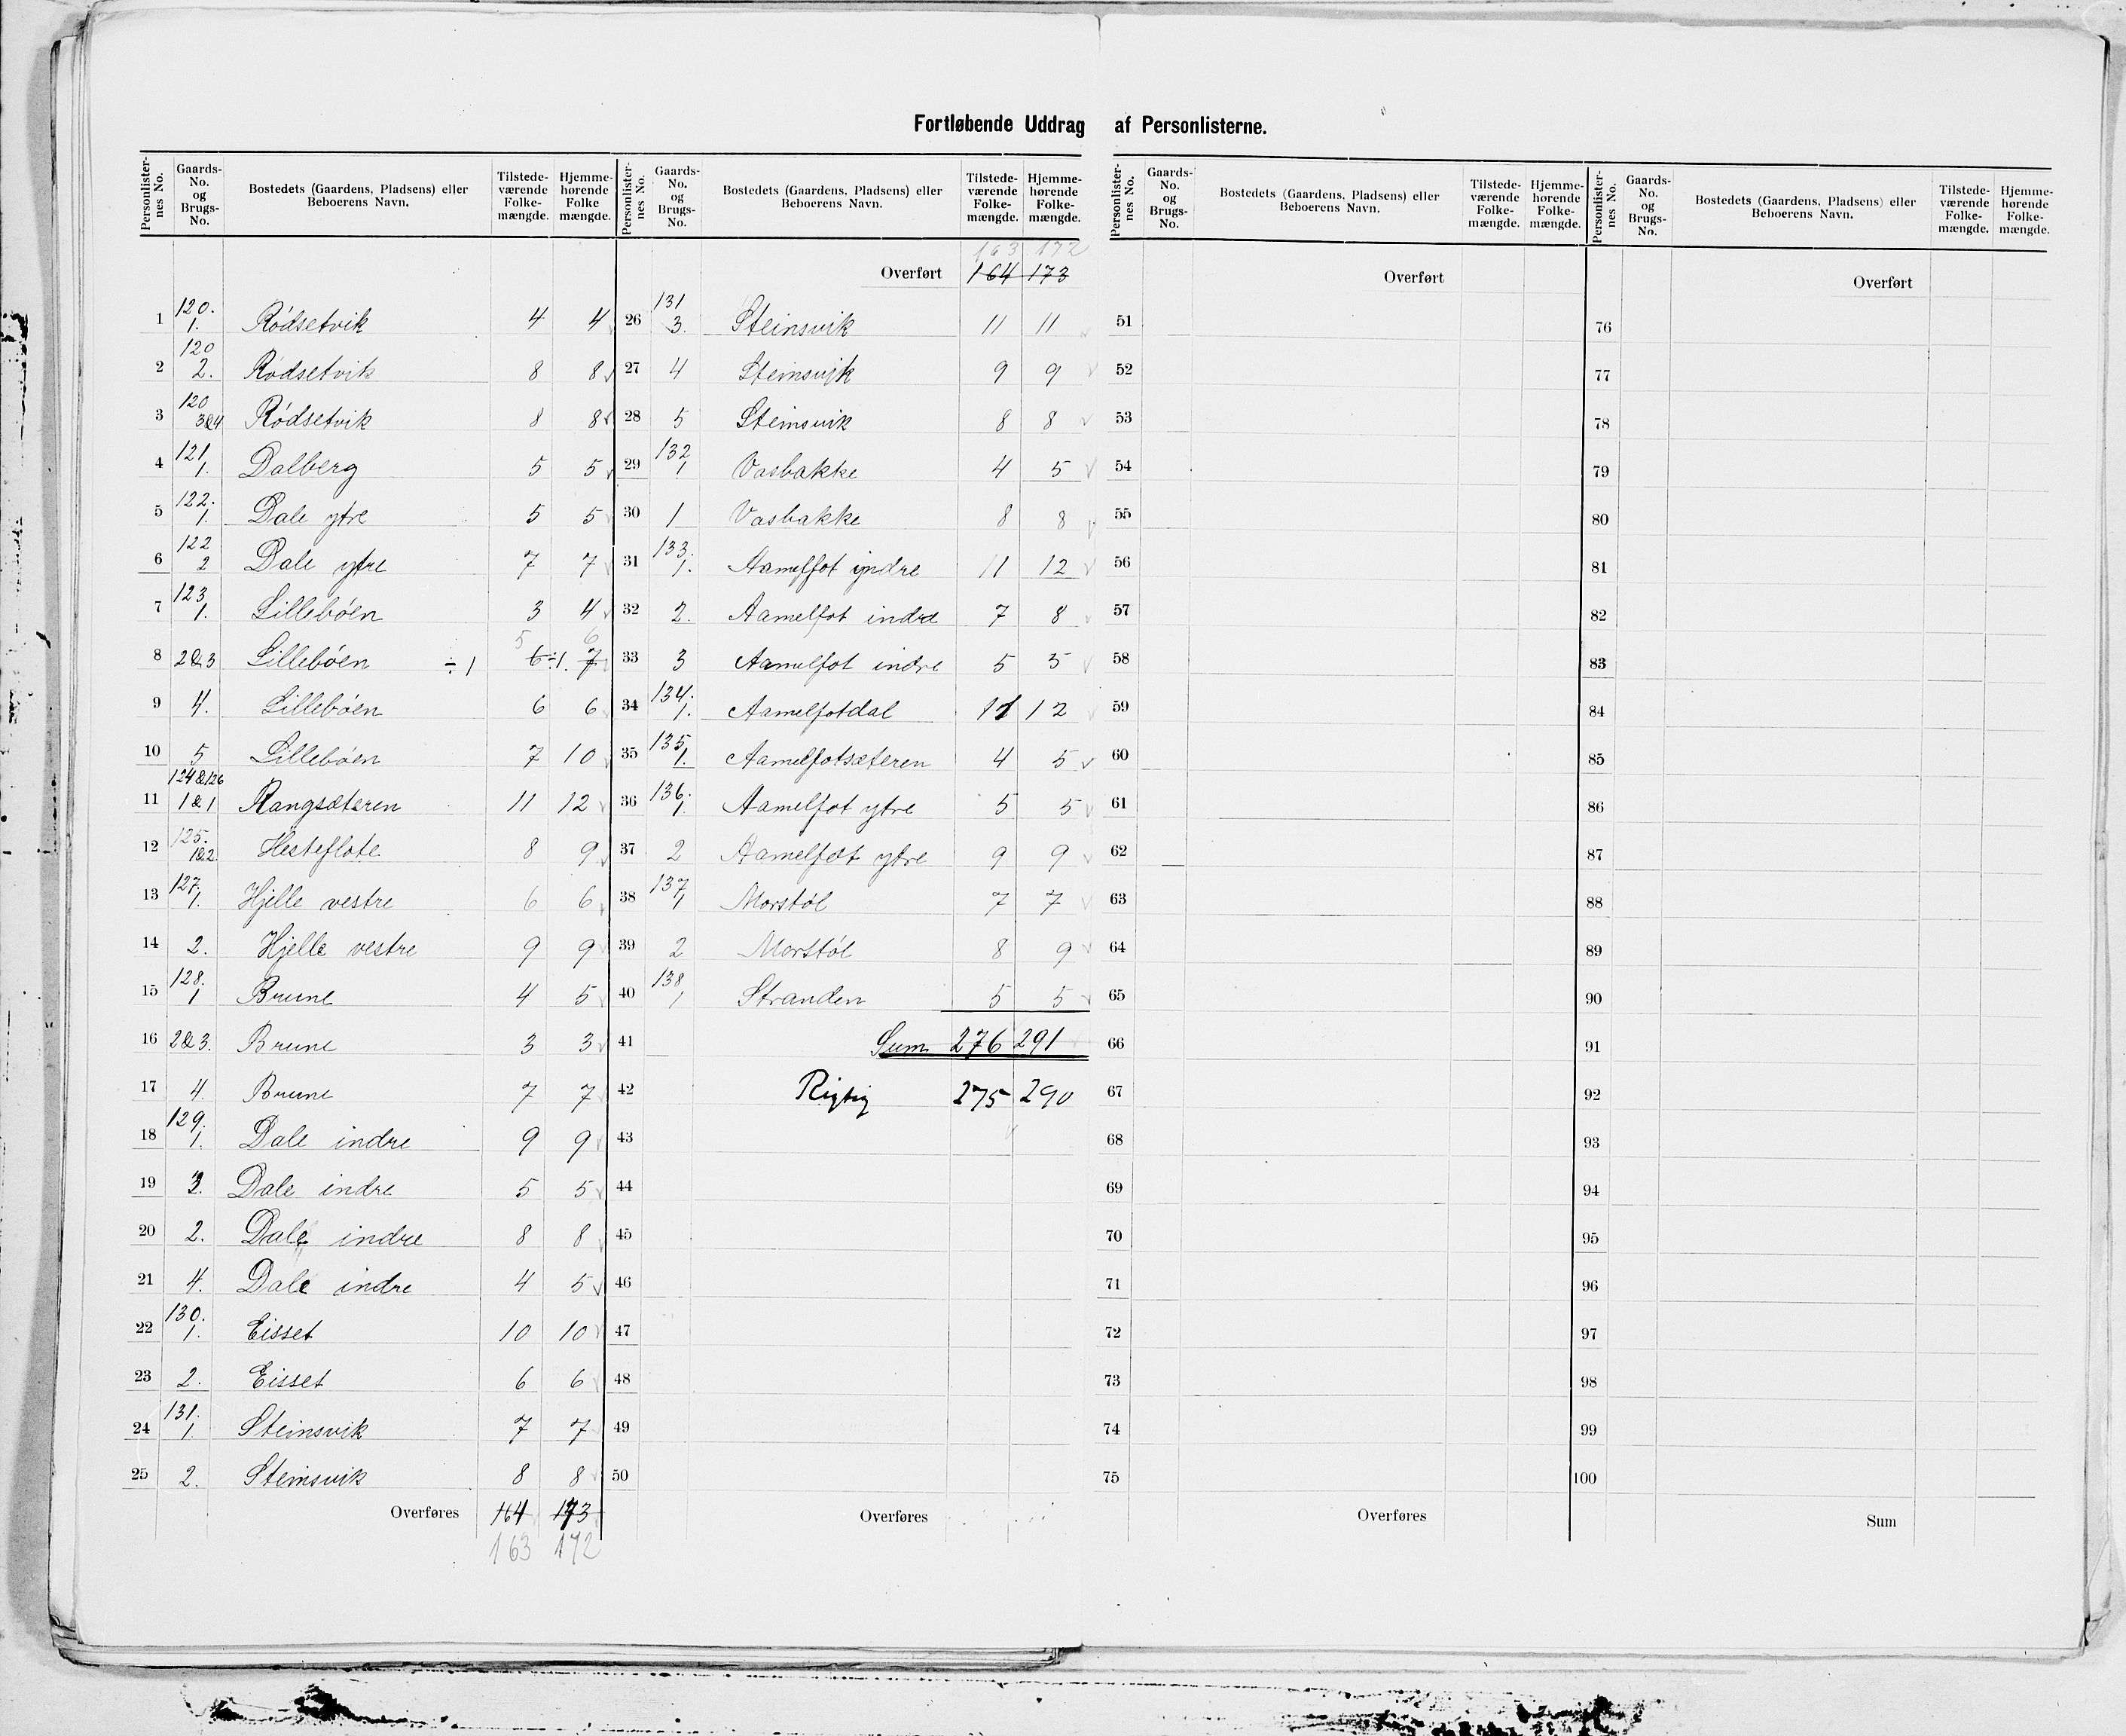 Fortløbende Uddrag af Personlisterne.
Personlister-nes No. Gaards-No. og Brugs-No. Bostedets (Gaardens, Pladsens) eller Beboerens Navn. Tilstede-værende Folke-mængde. Hjemme-hørende Folke mængde.
1 120. 1. Rödsetvik 4 4
2 120 2. Rödsetvik 8 8
3 120 3&4 Rödsetvik 8 8
4 121 1. Dalberg 5 5
5 122. 1. Dale ytre 5 5
6 122 2 Dale ytre 7 7
7 123 1. Lilleböen 3 4
5 6
8 2&3 Lilleböen ÷1 6÷1. 7
9 4. Lilleböen 6 6
10 5 Lilleböen 7 10
11 124&126 1&1 Rangsæteren 11 12
12 125. 1&2. Hesteflote 8 9
13 127. 1. Hjelle vestre 6 6
14 2. Hjelle vestre 9 9
15 128. 1 Brune 4 5
16 2&3. Brune 3 3
17 4. Brune 7 7
18 129. 1. Dale indre 9 9
19 3. Dale indre 5 5
20 2. Dale indre 8 8
21 4. Dale indre 4 5
22 130. 1. Eisset 10 10
23 2. Eisset 6 6
24 131. 1 Steinsvik 7 7
25 2. Steinsvik 8 8
Overføres 164 173
163 172
Personlister-nes No. Gaards-No. og Brugs-No. Bostedets (Gaardens, Pladsens) eller Beboerens Navn. Tilstede-værende Folke-mængde. Hjemme-hørende Folke-mængde.
163 172
Overført 164 173
26 131 3. Steinsvik 11 11
27 4 Steinsvik 9 9
28 5 Steinsvik 8 8
29 132 1 Vasbakke 4 5
30 1 Vasbakke 8 8
31 133. 1. Aamelfot indre 11 12
32 2. Aamelfot indre 7 8
33 3 Aamelfot indre 5 5
34 134. 1. Aamelfotdal 11 12
35 135 1. Aamelfotsæteren 4 5
36 136. 1. Aamelfot ytre 5 5
37 2 Aamelfot ytre 9 9
38 137 1 Morstöl 7 7
39 2 Morstöl 8 9
40 138 1 Stranden 5 5
41 Sum 276 291
42 Rigtig 275 290
43
44
45
46
47
48
49
50
Overføres
Personlister-nes No. Gaards-No. og Brugs-No. Bostedets (Gaardens, Pladsens) eller Beboerens Navn. Tilstede-værende Folke-mængde. Hjemme-hørende Folke-mængde.
Overført
51
52
53
54
55
56
57
58
59
60
61
62
63
64
65
66
67
68
69
70
71
72
73
74
75
Overføres
Personlister-nes No. Gaards-No. og Brugs-No. Bostedets (Gaardens, Pladsens) eller Beboerens Navn. Tilstede-værende Folke-mængde. Hjemme-hørende Folke-mængde.
Overført
76
77
78
79
80
81
82
83
84
85
86
87
88
89
90
91
92
93
94
95
96
97
98
99
100
Sum